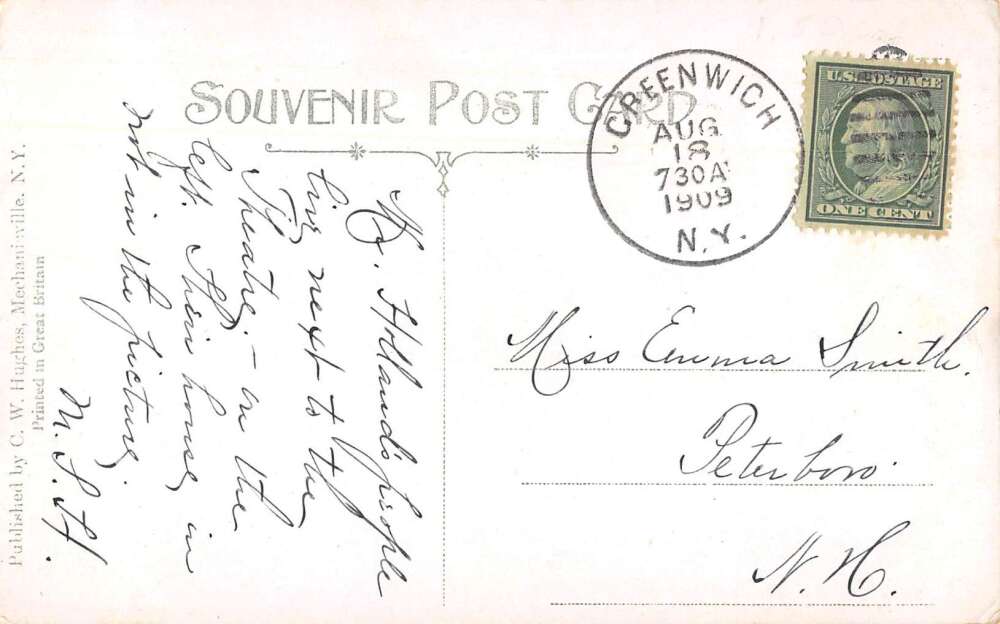 SOUVENIR POST CARD
GREENWICH
AUG
18
730A
1909
N.Y.
U.S. POSTAGE
ONE CENT
Miss Emma Smith.
Peterboro.
N. H.
Mr. Holland's people
live next to the
Theatre, - on the
left. Their house, in
not in the picture.
M. S. H.
Published by C. W. Hughes, Mechanicville, N.Y.
Printed in Great Britain